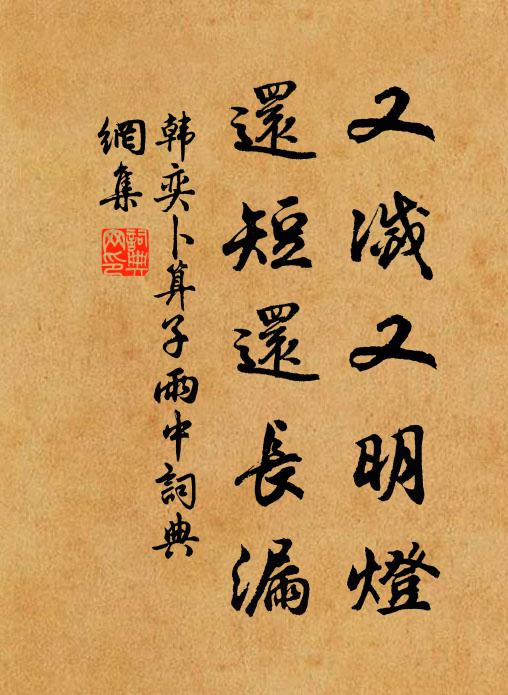 又滅又明燈
還短還長漏
韩奕卜算子雨中詞典
網集
詞典網印